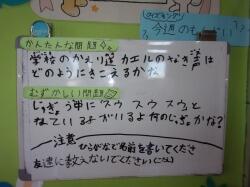 クイズキング
今週のもんだい
かんたんな問題
学校のかえり道カエルのなき声は
どのようにきこえるかな
むずかしい問題
じゅぎょう中にスウ スウ スウと
ねている子がいるよ何のじゅぎょうかな?
注意
ひらがなで名前を書いてくださ
友達に教えないでください